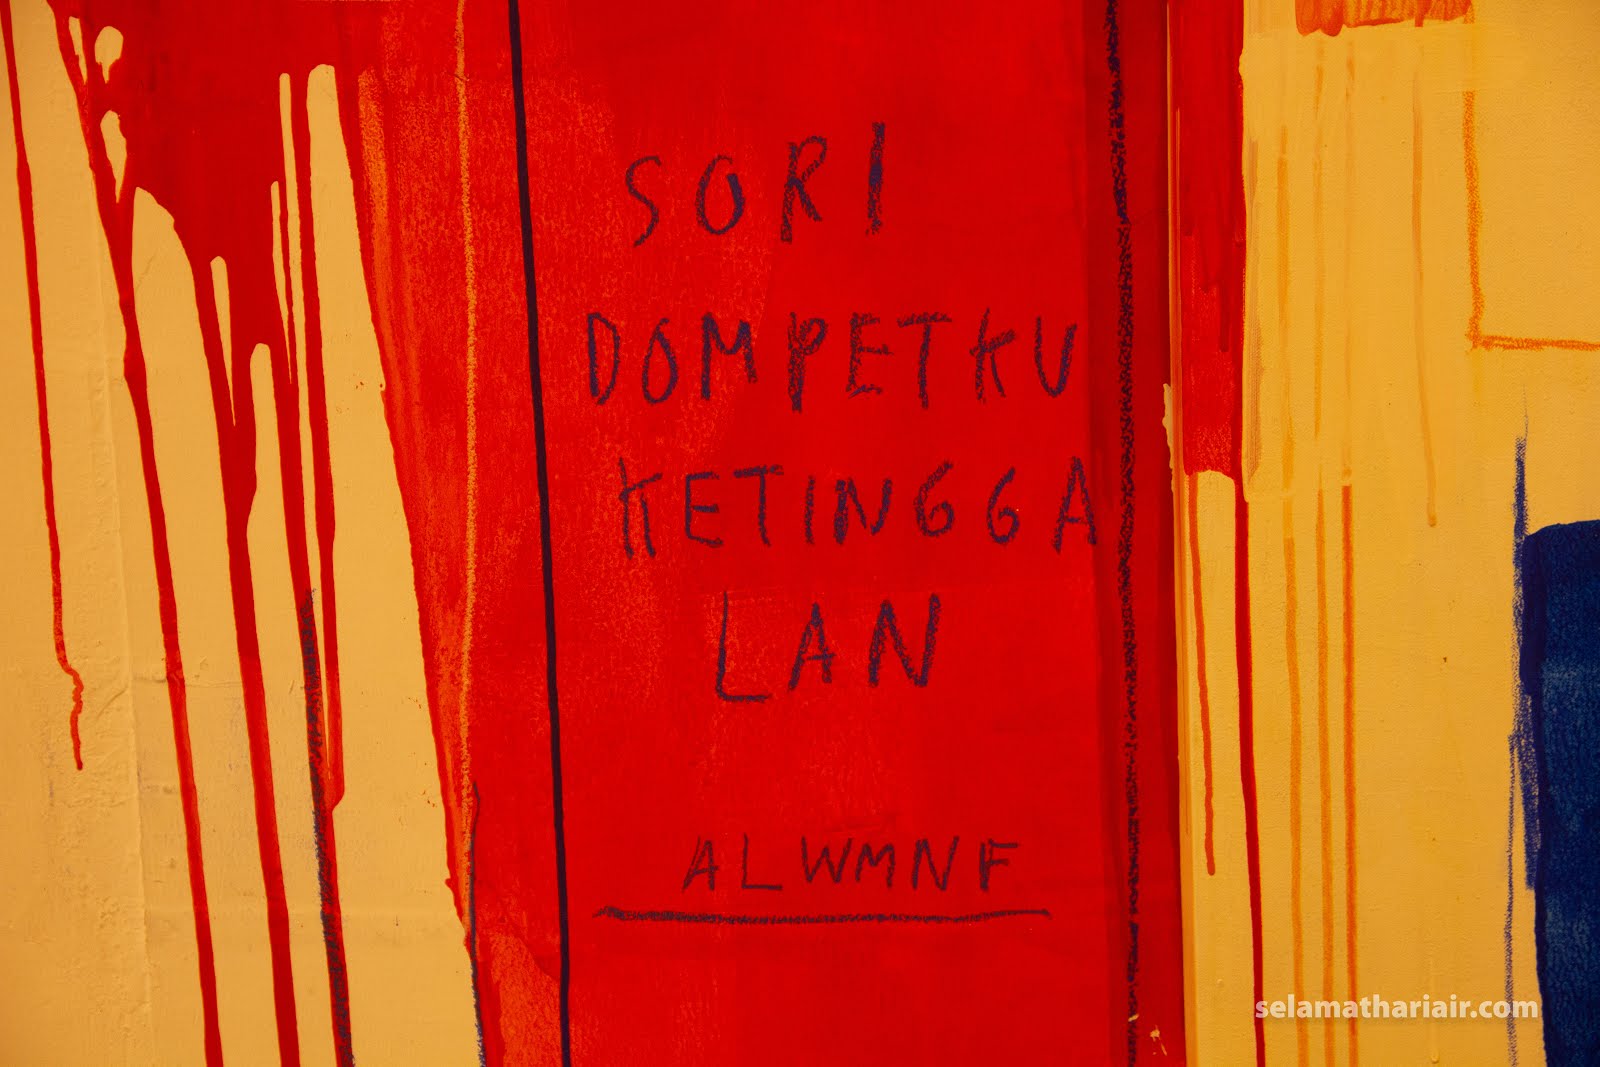 SORI
DOMPETKU
KETINGGA
LAN
ALWMNF
selamathariair.com